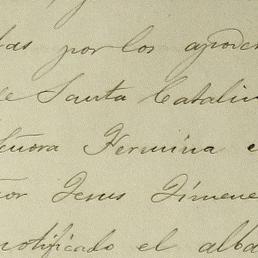 das por los apode
de Santa Catalin
eñora Fermina e
or Jesus Jimene
notificado el alba